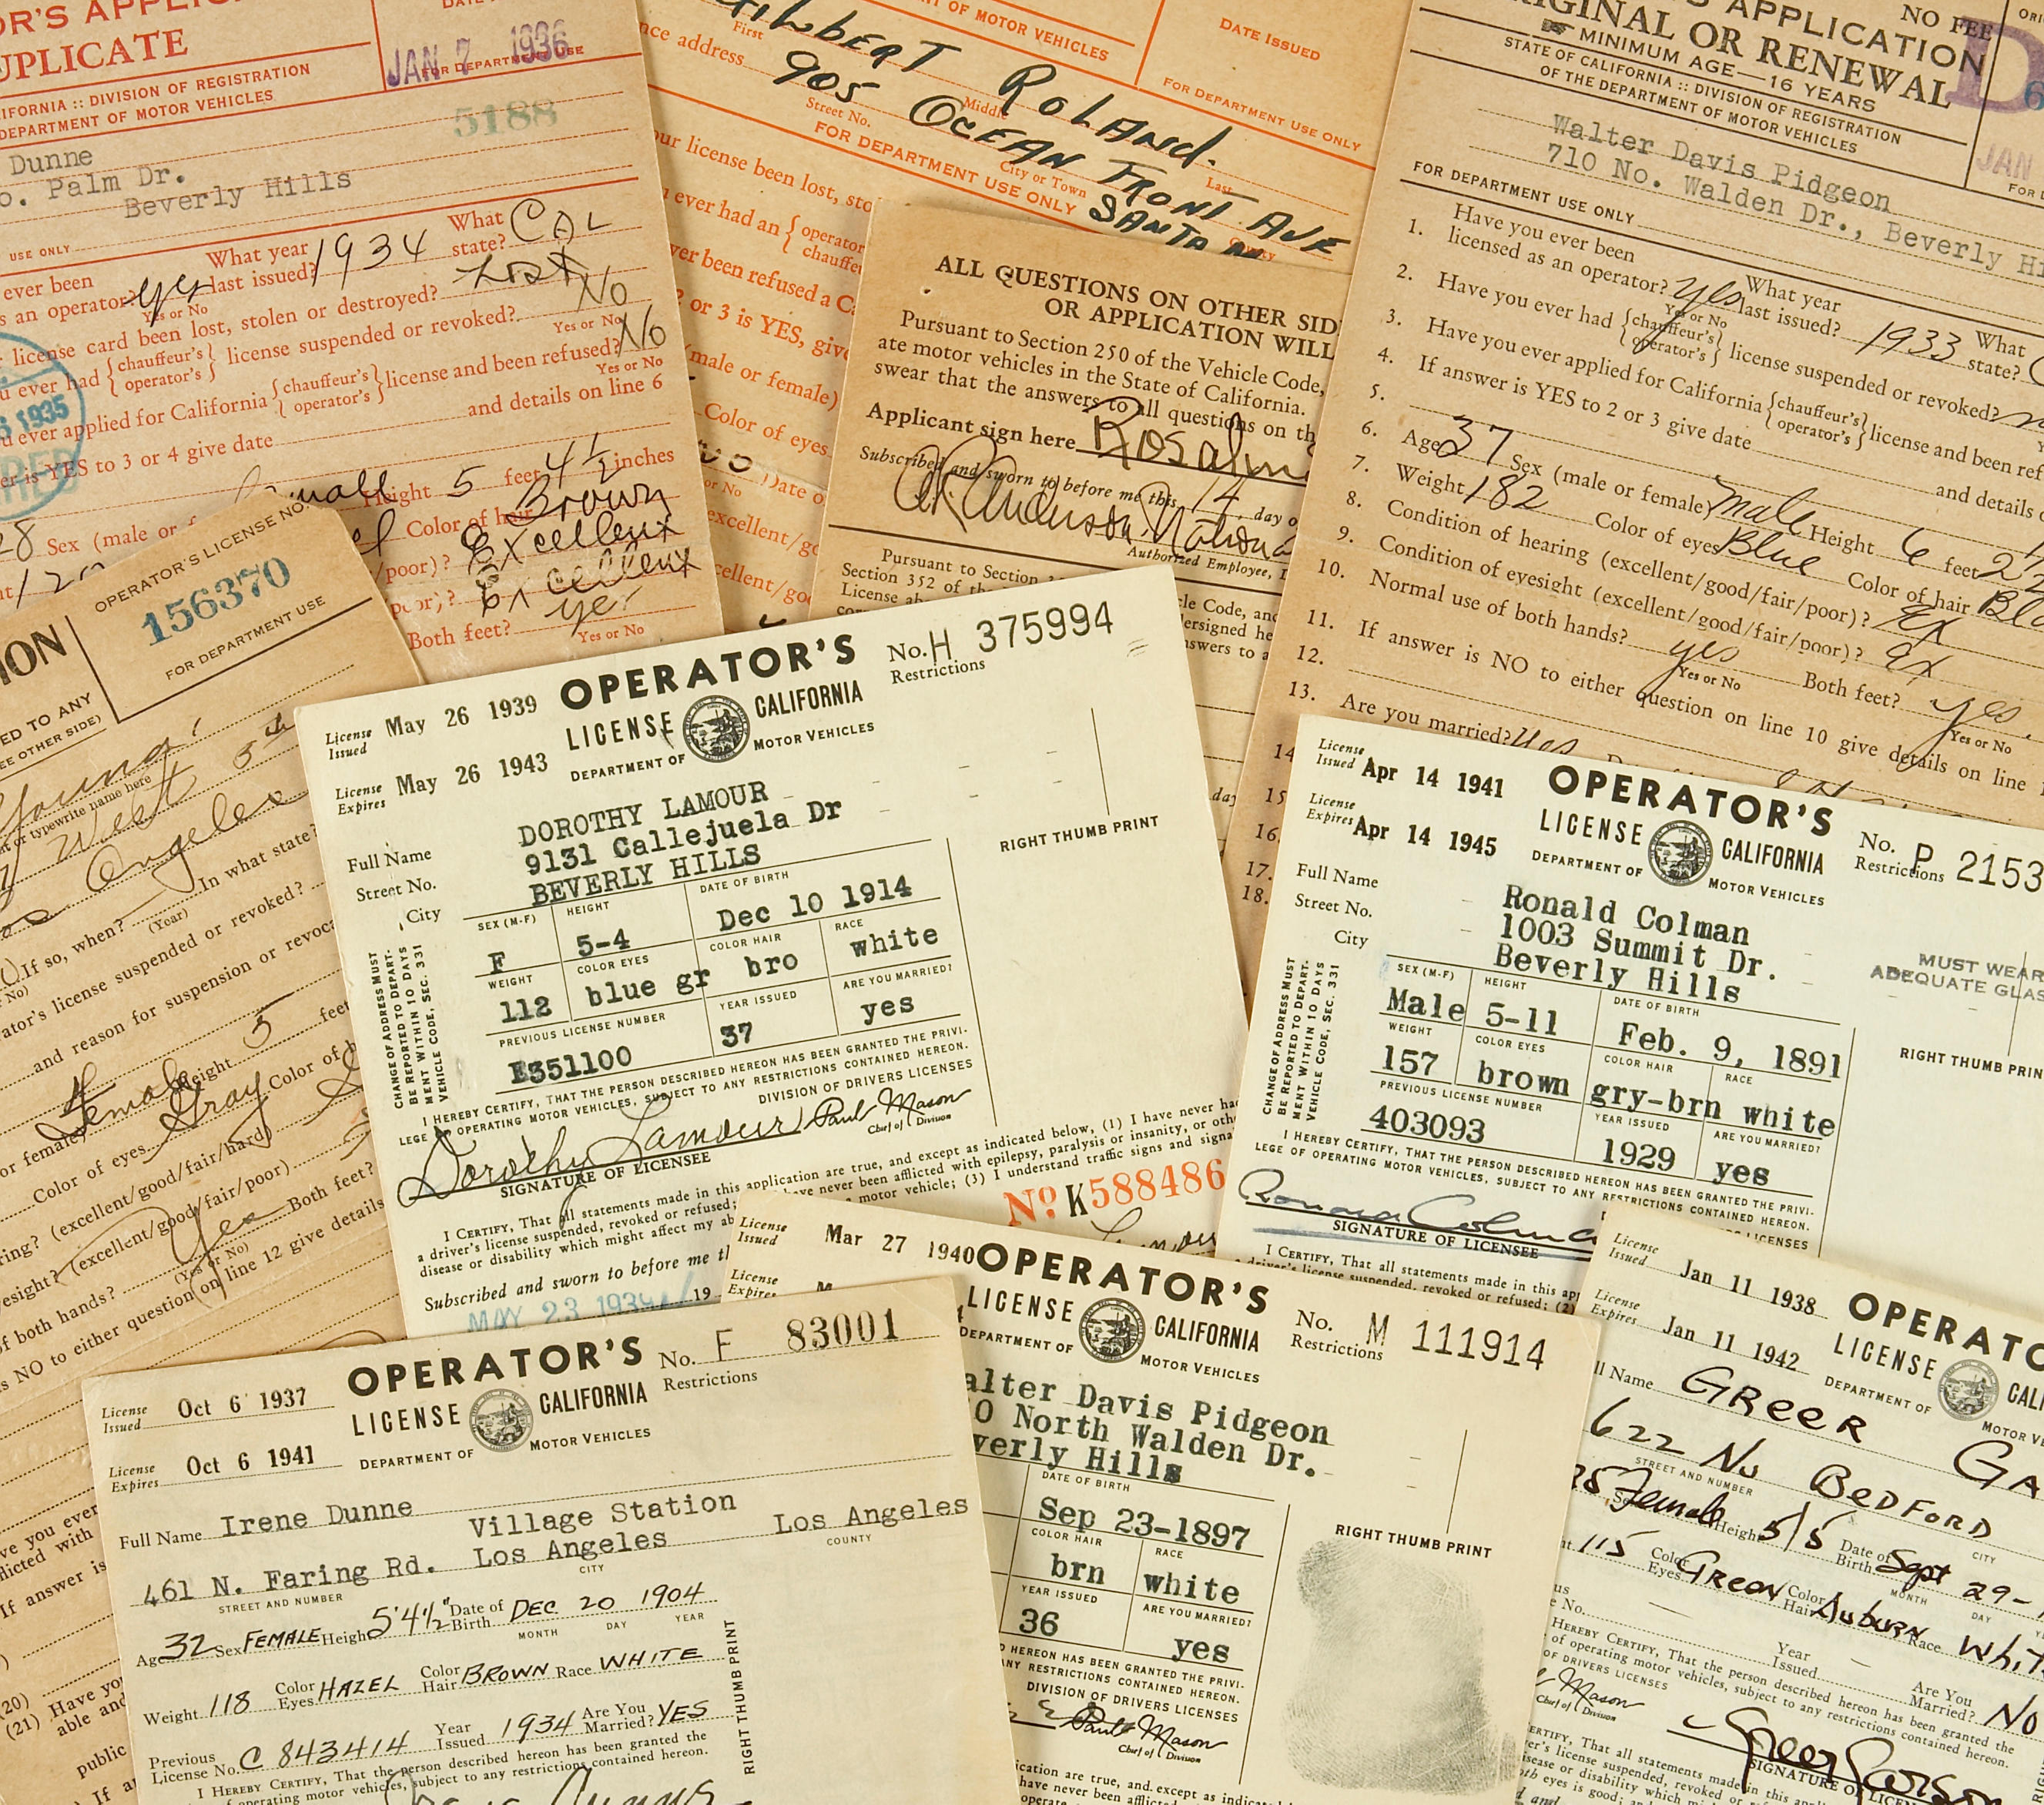 OR'S APPLIC
UPLICATE
IFORNIA :: DIVISION OF REGISTRATION
DEPARTMENT OF MOTOR VEHICLES
JAN 7 1936
FOR DEPARTMENT USE
5188
Dunne
o. Palm Dr.
Beverly Hills
USE ONLY
ever been
s an operator? yes
Yes or No
What year
last issued? 1934
What
state? CAL
license card been lost, stolen or destroyed? Lost
u ever had {chauffeur's operator's} license suspended or revoked? No
Yes or No
u ever applied for California {chauffeur's operator's} license and been refused? No
Yes or No
er is YES to 3 or 4 give date
and details on line 6
1935
28 Sex (male or f
Height 5 feet 4½ inches
Color of hair Brown
/poor)? Excellent
Excellent
Both feet? yes
Yes or No
OF MOTOR VEHICLES
DATE ISSUED
FOR DEPARTMENT USE ONLY
Gilbert Roland.
First
Middle
Last
nce address 905 Ocean Front Ave
Street No.
City or Town
County
FOR DEPARTMENT USE ONLY
Santa
our license been lost, sto
ever had an {operator chauffe
ver been refused a C
2 or 3 is YES, giv
(male or female)
Color of eyes
ALL QUESTIONS ON OTHER SID
OR APPLICATION WILL
Pursuant to Section 250 of the Vehicle Code,
ate motor vehicles in the State of California.
swear that the answers to all questions on th
Applicant sign here Rosalin
Subscribed and sworn to before me this 14 day o
Authorized Employee,
Pursuant to Section
Section 352 of the
License
S APPLICATION
NO FEE
RIGINAL OR RENEWAL
MINIMUM AGE—16 YEARS
STATE OF CALIFORNIA :: DIVISION OF REGISTRATION
OF THE DEPARTMENT OF MOTOR VEHICLES
JAN
Walter Davis Pidgeon
710 No. Walden Dr., Beverly Hi
FOR DEPARTMENT USE ONLY
1. Have you ever been
licensed as an operator? yes
Yes or No
What year
last issued? 1933
What
state?
2. Have you ever had {chauffeur's operator's} license suspended or revoked?
3. Have you ever applied for California {chauffeur's operator's} license and been ref
4. If answer is YES to 2 or 3 give date
and details
5.
6. Age 37 Sex (male or female) male Height 6 feet 2½
7. Weight 182 Color of eyes Blue Color of hair Bl
8. Condition of hearing (excellent/good/fair/poor)? Ex
9. Condition of eyesight (excellent/good/fair/poor)? Ex
10. Normal use of both hands? yes Both feet? yes
Yes or No
Yes or No
11. If answer is NO to either question on line 10 give details on line
12.
13. Are you married? Yes
14
15
16.
17.
18.
ION
OPERATOR'S LICENSE NO.
156370
FOR DEPARTMENT USE
ED TO ANY
EE OTHER SIDE)
Young
nt or typewrite name here
West 5th
Angeles
In what state?
If so, when?
(Year)
ator's license suspended or revoked?
and reason for suspension or revoca
Female
or female)
Height 5 feet
Color of eyes Gray Color of h
ring? (excellent/good/fair/hard)
esight? (excellent/good/fair/poor)
f both hands? Yes Both feet?
(Yes or No)
s NO to either question on line 12 give details
ve you ever
flicted with
If answer is
(20)
(21) Have yo
able and
public
If a
License Issued May 26 1939
License Expires May 26 1943
OPERATOR'S
LICENSE CALIFORNIA
DEPARTMENT OF MOTOR VEHICLES
No. H 375994
Restrictions
Full Name DOROTHY LAMOUR
Street No. 9131 Callejuela Dr
City BEVERLY HILLS
SEX (M-F) F
HEIGHT 5-4
DATE OF BIRTH Dec 10 1914
WEIGHT 112
COLOR EYES blue gr
COLOR HAIR bro
RACE white
PREVIOUS LICENSE NUMBER E351100
YEAR ISSUED 37
ARE YOU MARRIED? yes
RIGHT THUMB PRINT
CHANGE OF ADDRESS MUST
BE REPORTED TO DEPART-
MENT WITHIN 10 DAYS
VEHICLE CODE, SEC. 331
I HEREBY CERTIFY, THAT THE PERSON DESCRIBED HEREON HAS BEEN GRANTED THE PRIVI-
LEGE OF OPERATING MOTOR VEHICLES, SUBJECT TO ANY RESTRICTIONS CONTAINED HEREON.
DIVISION OF DRIVERS LICENSES
Dorothy Lamour
Paul Mason
Chief of Division
SIGNATURE OF LICENSEE
I CERTIFY, That all statements made in this application are true, and except as indicated below, (1) I have never had
a driver's license suspended, revoked or refused;
have never been afflicted with epilepsy, paralysis or insanity, or oth
disease or disability which might affect my ab
motor vehicle; (3) I understand traffic signs and signa
No K588486
Subscribed and sworn to before me t
MAY 23 1939
19
License Issued Apr 14 1941
License Expires Apr 14 1945
OPERATOR'S
LICENSE CALIFORNIA
DEPARTMENT OF MOTOR VEHICLES
No. P 2153
Restrictions
Full Name Ronald Colman
Street No. 1003 Summit Dr.
City Beverly Hills
MUST WEAR
ADEQUATE GLAS
SEX (M-F) Male
HEIGHT 5-11
DATE OF BIRTH Feb. 9, 1891
WEIGHT 157
COLOR EYES brown
COLOR HAIR gry-brn
RACE white
PREVIOUS LICENSE NUMBER 403093
YEAR ISSUED 1929
ARE YOU MARRIED? yes
RIGHT THUMB PRIN
CHANGE OF ADDRESS MUST
BE REPORTED TO DEPART-
MENT WITHIN 10 DAYS
VEHICLE CODE, SEC. 331
I HEREBY CERTIFY, THAT THE PERSON DESCRIBED HEREON HAS BEEN GRANTED THE PRIVI-
LEGE OF OPERATING MOTOR VEHICLES, SUBJECT TO ANY RESTRICTIONS CONTAINED HEREON.
Ronald Colma
SIGNATURE OF LICENSEE
I CERTIFY, That all statements made in this app
driver's license suspended, revoked or refused; (2)
License Issued Oct 6 1937
License Expires Oct 6 1941
OPERATOR'S
LICENSE CALIFORNIA
DEPARTMENT OF MOTOR VEHICLES
No. F 83001
Restrictions
Full Name Irene Dunne
Village Station
461 N. Faring Rd. Los Angeles Los Angeles
STREET AND NUMBER CITY COUNTY
Age 32 Sex FEMALE Height 5'4½" Date of Birth DEC 20 1904
MONTH DAY YEAR
Weight 118 Color Eyes HAZEL Color Hair BROWN Race WHITE
Previous License No. C 843414 Year Issued 1934 Are You Married? YES
RIGHT THUMB PRINT
I HEREBY CERTIFY, That the person described hereon has been granted the
of operating motor vehicles, subject to any restrictions contained hereon.
License Issued Mar 27 1940
License Expires
OPERATOR'S
LICENSE CALIFORNIA
DEPARTMENT OF MOTOR VEHICLES
No. M 111914
Restrictions
alter Davis Pidgeon
0 North Walden Dr.
verly Hills
DATE OF BIRTH Sep 23-1897
COLOR HAIR brn
RACE white
YEAR ISSUED 36
ARE YOU MARRIED? yes
RIGHT THUMB PRINT
D HEREON HAS BEEN GRANTED THE PRIVI-
ANY RESTRICTIONS CONTAINED HEREON.
DIVISION OF DRIVERS LICENSES
Paul Mason
Chief of Division
ication are true, and except as indicat
have never been afflicted
License Issued Jan 11 1938
License Expires Jan 11 1942
OPERATO
LICENSE CALI
DEPARTMENT OF MOTOR VE
ll Name GREER GA
622 No BEDFORD
STREET AND NUMBER CITY
Female Height 5/5 Date of Birth Sept 29-
MONTH DAY
115 Color Eyes Green Color Hair Auburn Race Whit
Year Issued
Are You Married? No
HEREBY CERTIFY, That the person described hereon has been granted the
of operating motor vehicles, subject to any restrictions contained hereon.
OF DRIVERS LICENSES
Mason
Chief of Division
Greer Garson
SIGNATURE OF LICEN
ERTIFY, That all statements made in this